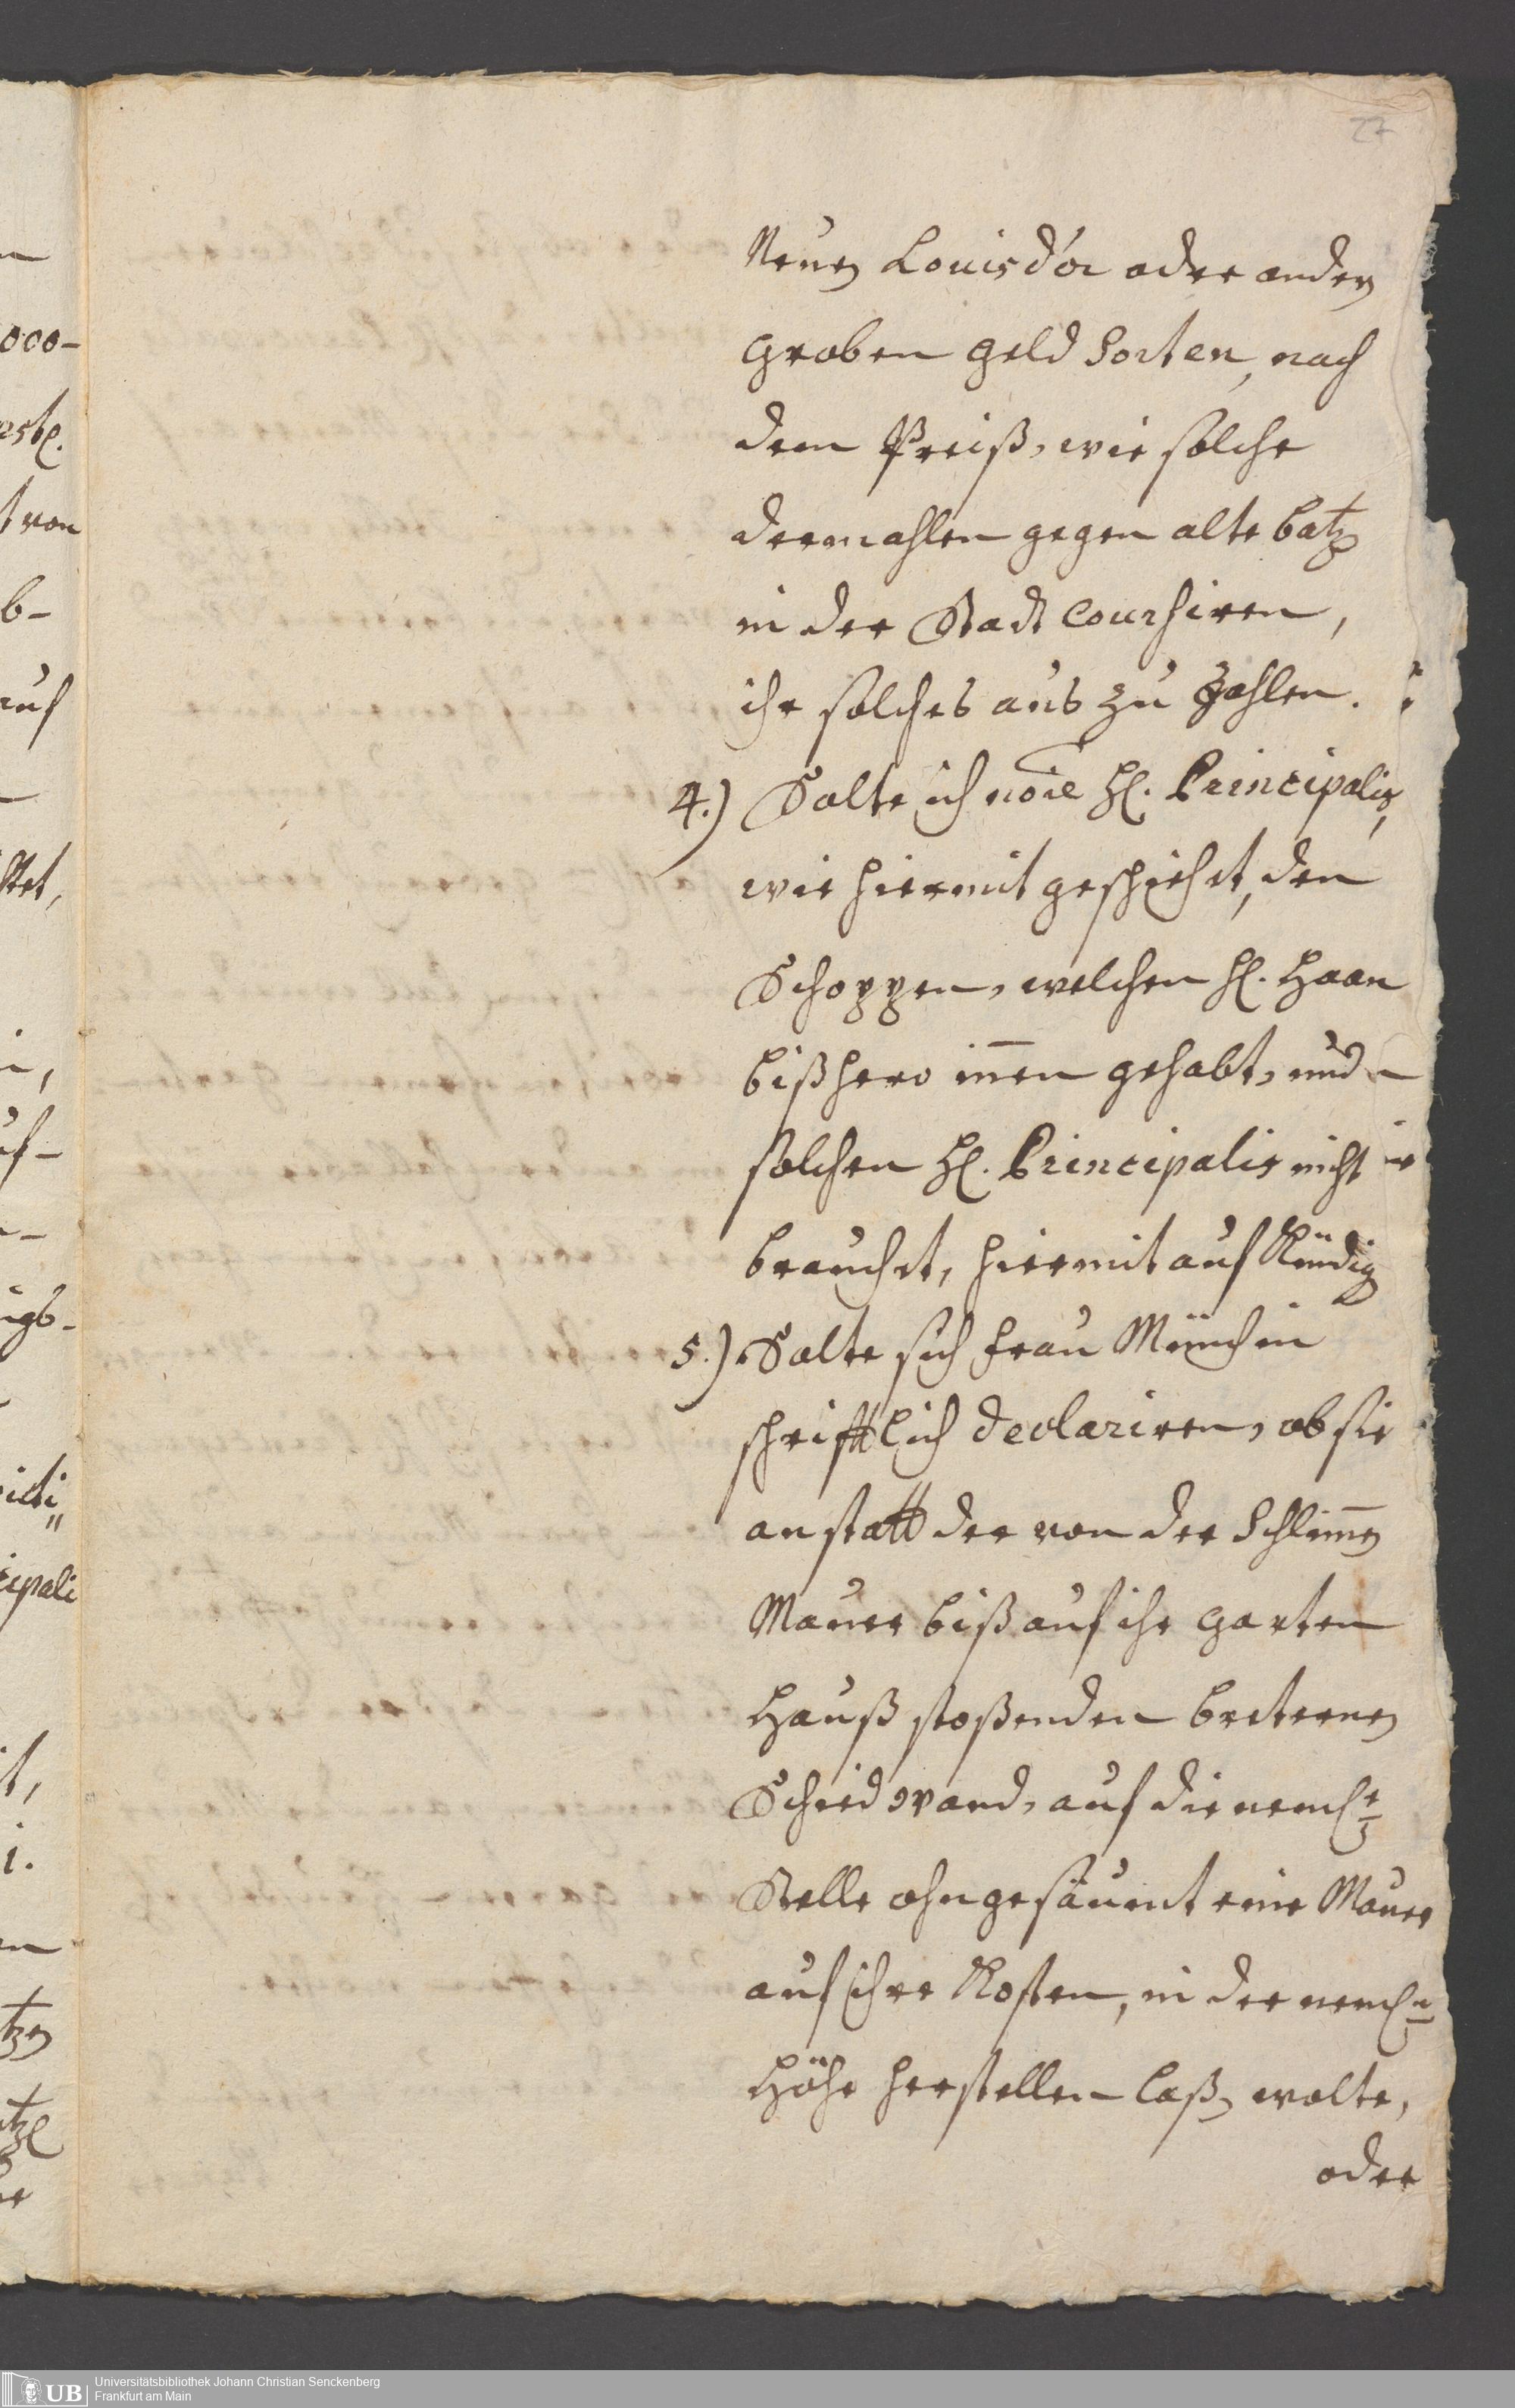 27
Neuen Louisd'or oder andern
groben geld Sorten, nach
dem Preiß, wie solche
dermahlen gegen alte batzen
in der Stadt Courßiren,
ihr solches aus zu zahlen.
4.) Solte ich noīe H. Principalis,
wie hiermit geschiehet, den
Schoppen, welchen H. Haan
bißhero iñen gehabt, und
solchen H. Principalis nicht
brauchet, hiermit auf Kündig
5.) Solte sich Frau Münchin
schrifftlich declariren, ob sie
anstatt der von der Schlim̄en
Mauer biß auf ihr garten
Hauß stoßenden breternen
Schiedwand, auf die neml.e
Stelle ohngesäumt eine Mauer
auf ihre Kosten, in der neml.n
Höhe herstellen laßen wolte,
oder
000-
t von
b-
auf
cipali
UB Universitätsbibliothek Johann Christian Senckenberg
Frankfurt am Main